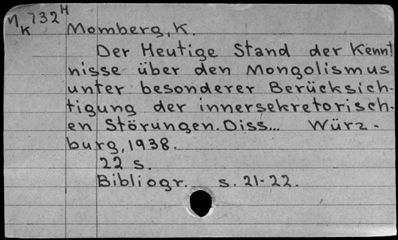 n 732 H
k
Momberg, K.
Der Heutige Stand der Kennt
nisse über den Mongolismus
unter besonderer Berücksich-
tigung der innersekretorisch-
en Störungen. Diss... Würz-
burg, 1938.
22 s.
Bibliogr. s. 21-22.